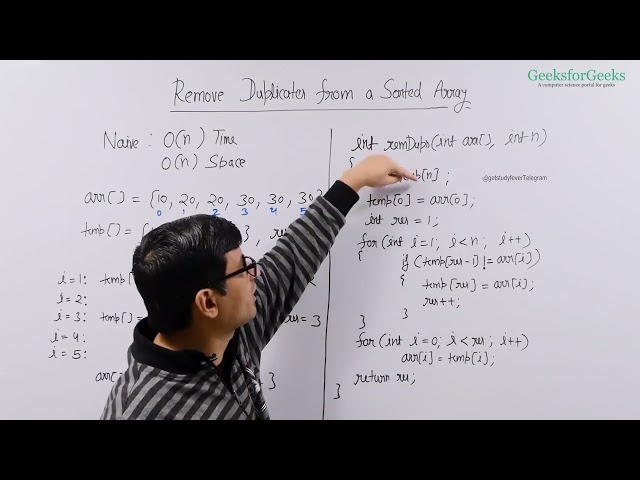 GeeksforGeeks
A computer science portal for geeks
Remove Duplicates from a Sorted Array
Naive : O(n) Time
O(n) Space
arr[] = {10, 20, 20, 30, 30, 30}
0 1 2 3 4 5
temp[] = {
i=1: temp[
i=2:
i=3: temp[] =
res = 3
i=4:
i=5:
arr
}
int remDups(int arr[], int n)
{
[n] ;
@getstudyfeverTelegram
temp[0] = arr[0];
int res = 1;
for(int i=1; i<n; i++)
{ if (temp[res-1] != arr[i])
{ temp[res] = arr[i];
res++;
} }
for(int i=0; i<res; i++)
arr[i] = temp[i];
return res;
}